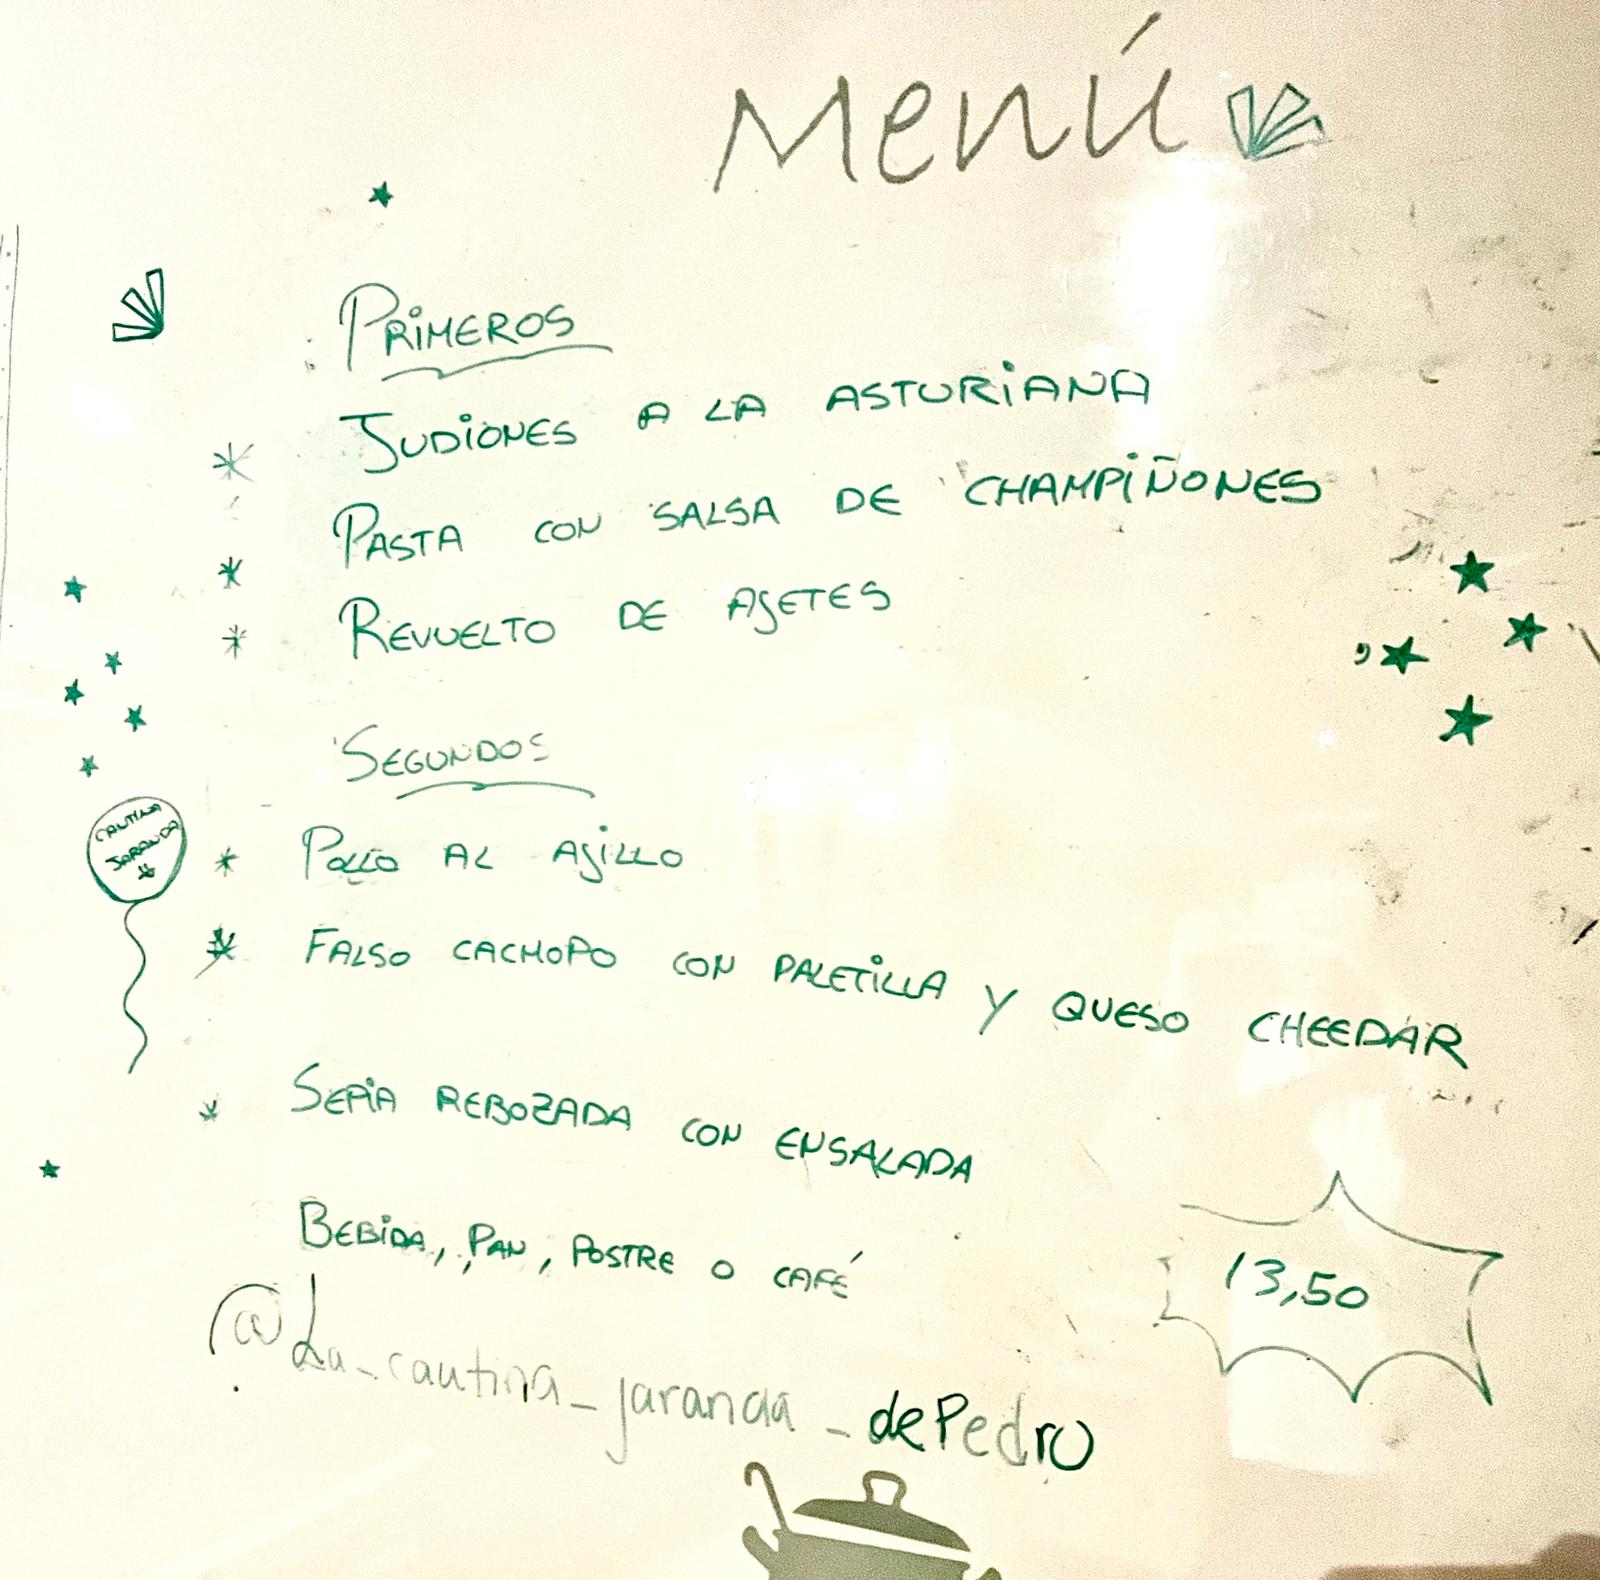 Menú
PRIMEROS
JUDIONES A LA ASTURIANA
PASTA CON SALSA DE CHAMPIÑONES
REVUELTO DE AJETES
SEGUNDOS
CAUTIVA
JARANDA
POLLO AL AJILLO
FALSO CACHOPO CON PALETILLA Y QUESO CHEEDAR
SEPIA REBOZADA CON ENSALADA
BEBIDA, PAN, POSTRE O CAFÉ
13,50
@La_cautiva_jaranda_dePedro